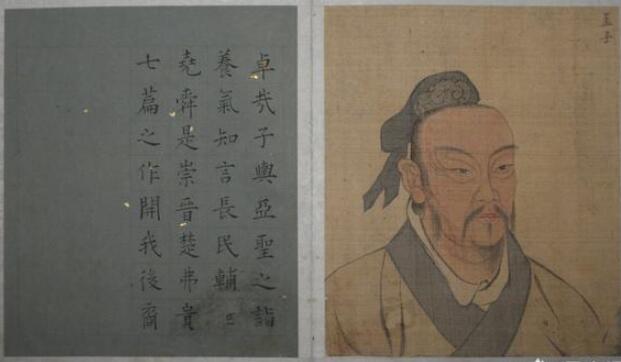 孟子
卓㦲子輿亞聖之詣
養氣知言長民輔
堯舜是崇晉楚弗貴
七篇之作開我後裔